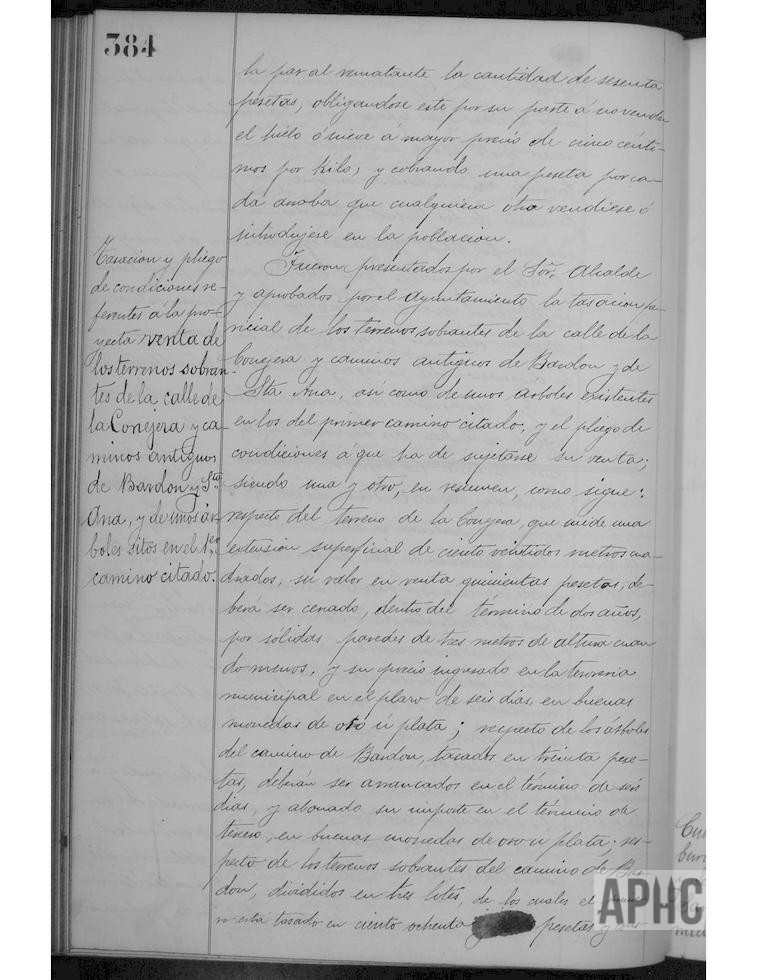 384
la par al rematante la cantidad de sesenta
pesetas, obligandose este por su parte á no vender
el hielo ó nieve á mayor precio de cinco cénti-
mos por Kilo, y cobrando una peseta por ca-
da arroba que cualquiera otro vendiese ó
introdujese en la poblacion.
Tasacion y pliego
de condiciones re-
ferentes a la pro-
yecta venta de
los terrenos sobran-
tes de la calle de
la Conejera y ca-
minos antiguos
de Bardon y Sta
Ana, y de unos ár-
boles sitos en el 1er
camino citado.
Fueron presentados por el Sor. Alcalde
y aprobados por el Ayuntamiento la tasacion pe-
ricial de los terrenos sobrantes de la calle de la
Conejera y caminos antiguos de Bardon y de
Sta Ana, así como de unos árboles existentes
en los del primer camino citado, y el pliego de
condiciones á que ha de sujetarse su venta;
siendo una y otro, en resumen, como sigue:
respecto del terreno de la Conejera, que mide una
extension superficial de ciento veintidos metros cua-
drados, su valor en venta quinientas pesetas, de-
berá ser cerrado, dentro del término de dos años,
por sólidas paredes de tres metros de altura cuan-
do menos, y su precio ingresado en la tesoreria
municipal en el plazo de seis dias, en buenas
monedas de oro ú plata; respecto de los árboles
del camino de Bardon, tasados en treinta pese-
tas, deberán ser arrancados en el término de seis
dias, y abonado su importe en el término de
tercero, en buenas monedas de oro ú plata; res-
pecto de los terrenos sobrantes del camino de Bar-
don, divididos en tres lotes, de los cuales el
está tasado en ciento ochenta pesetas y
APHC